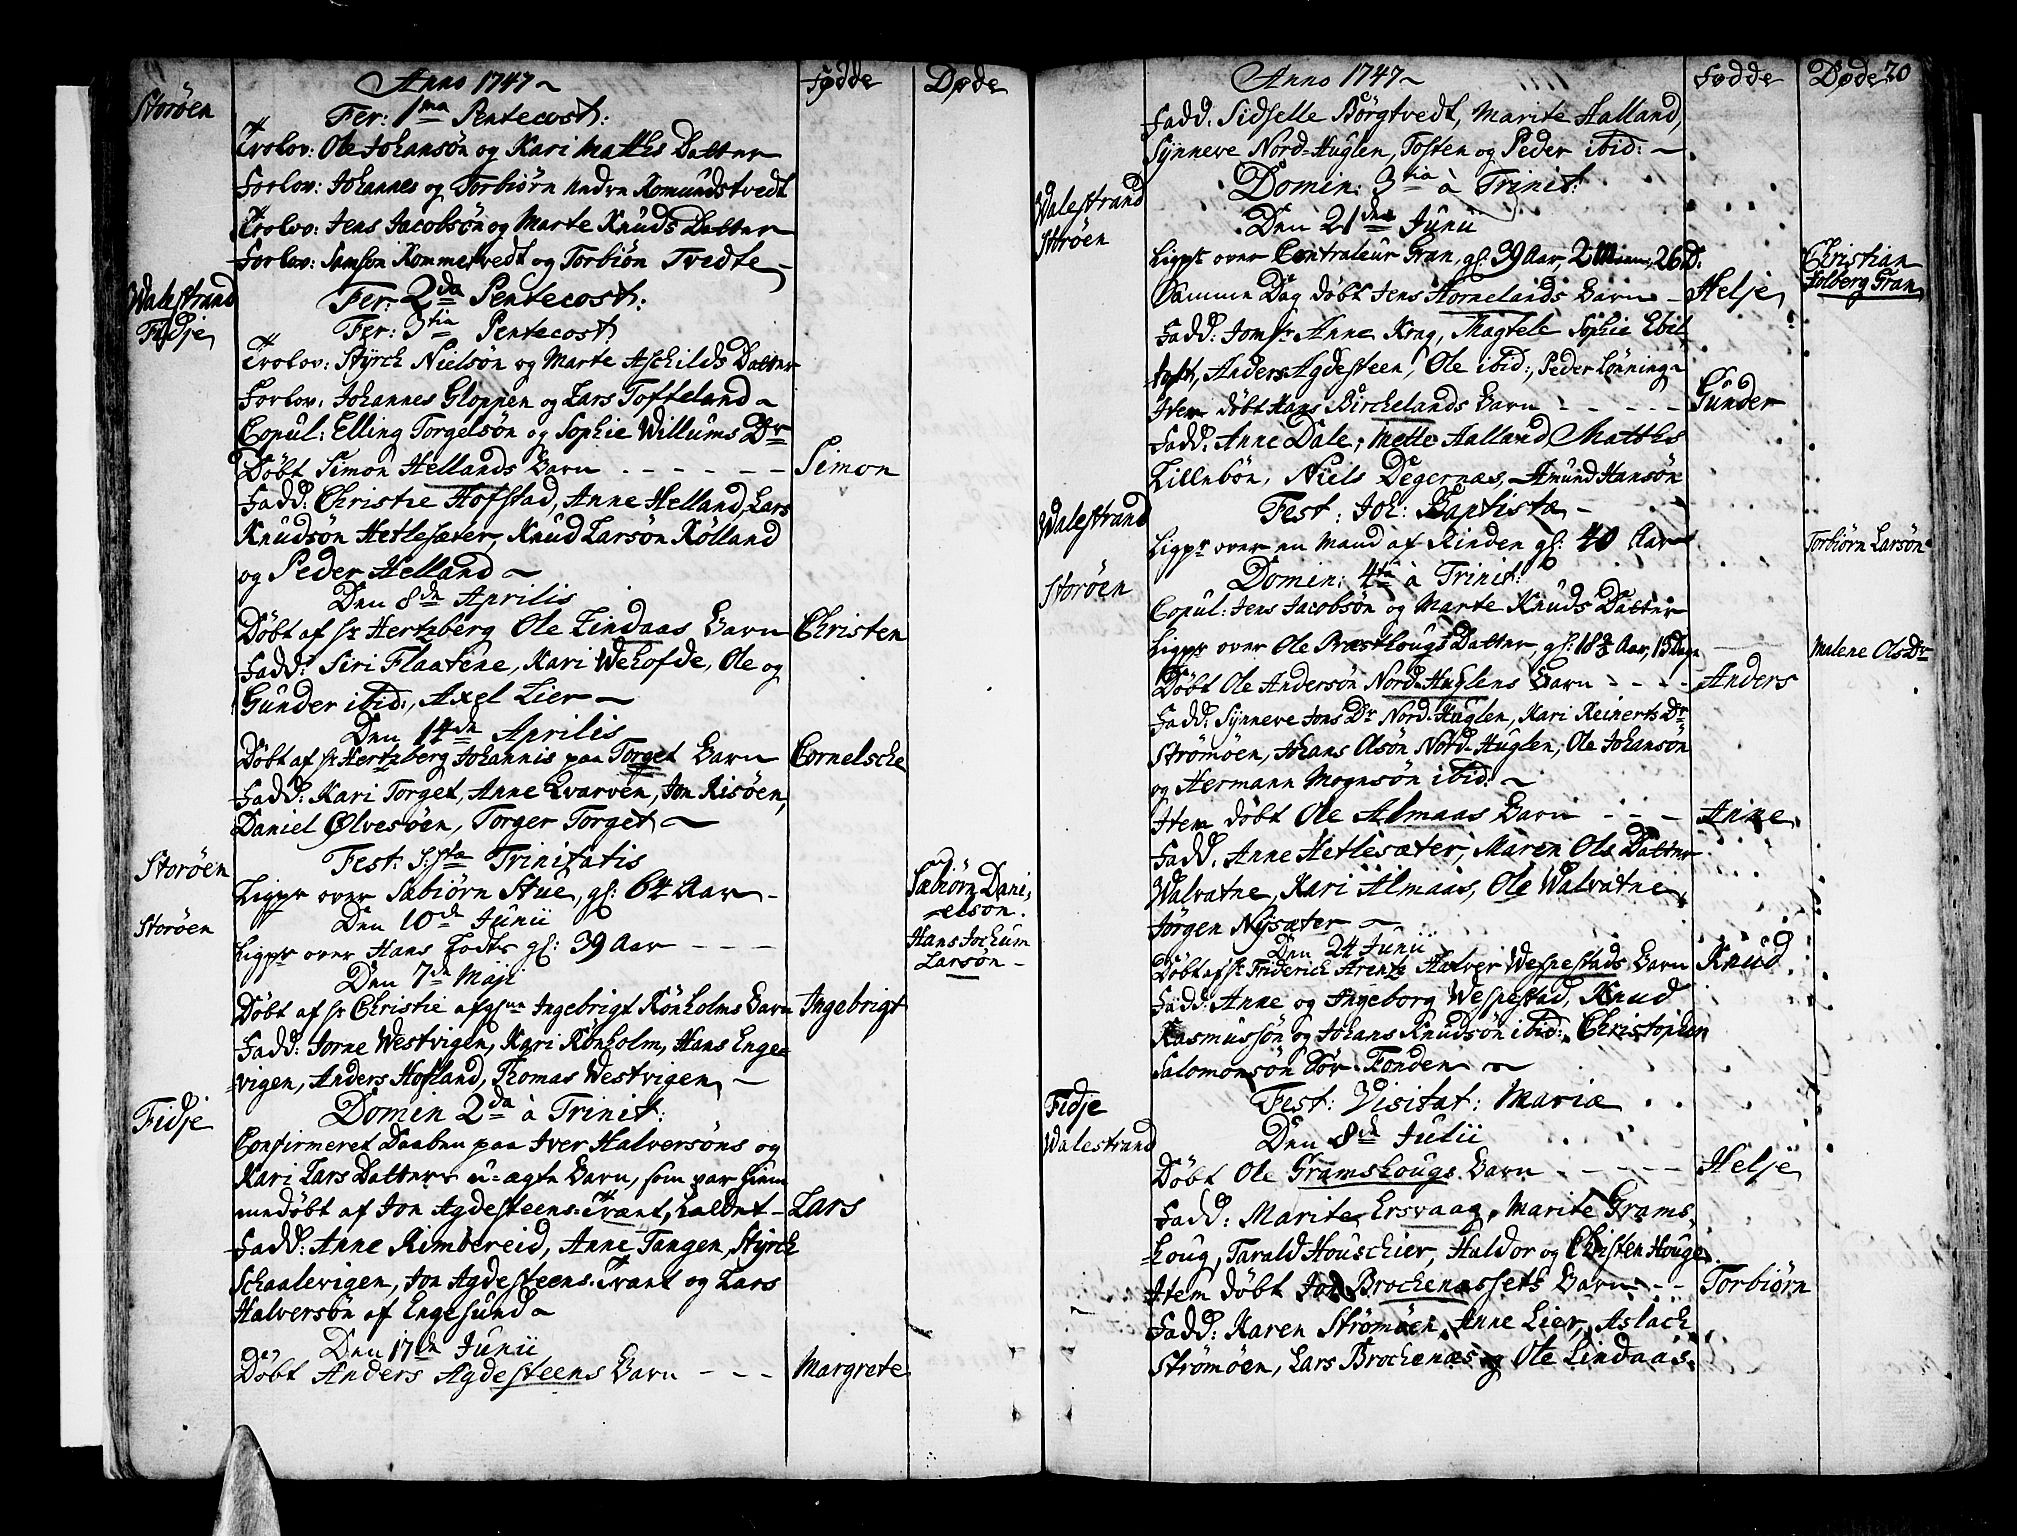 Anno 1747
Fødde
Døde
Storøen
Fer: 1ma Pentecost:
Trolov: Ole Johansøn og Kari Matthis Datter
Forlov: Johannes og Torbiørn Romundstvedt
Trolov: Jens Jacobsøn og Marte Knuds Datter
Forlov: Samson Kommetvedt og Torbiön Tvedte
Walestrand
Fer: 2da Pentecost:
Fidje
Fer: 3tia Pentecost:
Trolov: Styrck Nielsøn og Marte Aschilds Datter
Forlov: Johannes Gloppen og Lars Toffeland
Copul: Elling Torgelsøn og Sophie Willums Dr
Døbt Simon Hellands Barn - - - - - Simon
Fadd: Christie Hofstad, Anne Helland, Lars
Knudsøn Hetlesæter, Knud Larsøn Kølland
og Peder Helland
Den 8de Aprilis
Døbt af Hr Hertzberg Ole Lindaas Barn Christen
Fadd: Siri Flaatene, Kari Wehofde, Ole og
Gunder ibid:, Axel Lier
Den 14de Aprilis
Døbt af Hr Hertzberg Johannis paa Torget Barn Cornelsche
Fadd: Kari Torget, Anne Qvarven, Jon Risøen,
Daniel Ølvesøen, Torger Torget
Storøen
Fest: S:sta Trinitatis
Ligpr over Sabiørn Stue, gl: 64 Aar - Sæbiørn Dani-
elsøn.
Storøen
Den 10de Junii
Ligpr over Hans Lodts gl: 39 Aar - - - Hans Jochum
Larsøn
Den 7de Maji
Døbt af Hr Christie Ingebrigt Rönholms Barn Ingebrigt
Fadd: Jorne Westvigen, Kari Rönholm, Hans Enge-
vigen, Anders Hofland, Thomas Westvigen
Fidje
Domin 2da à Trinit:
Confirmeret Daaben paa Iver Halversøns og
Kari Lars Datters u-ægte Barn, som var hiem-
medøbt af Jon Agdesteens-Trant, kaldet - Lars
Fadd: Anne Rimbereid, Anne Tangen, Styrck
Schaalevigen, Jon Agdesteens-Trant og Lars
Halversøn af Engesund
Den 17de Junii
Døbt Anders Agdesteens Barn - - - Margrete
Anno 1747
Fødde
Døde 20
Fadd: Sidselle Börgtvedt, Marite Halland,
Synneve Nord-Huglen, Tosten og Peder ibid:
Walestrand
Domin: 3tia à Trinit:
Storøen
Den 21de Junii
Ligpr over Controleur Gran, gl: 39 Aar, 2 26 D: Christian
Holberg Gran
Samme Dag døbt Jens Hornelands Barn - Helje
Fadd: Jomfr Anne Krag, Magtele Sophie Ebil-
toft, Anders Agdesteen, Ole ibid:, Peder Lönning
Item døbt Hans Birchelands Barn - - - - Gunder
Fadd: Anne Dale, Mette Aalland, Matthis
Lillebön, Niels Degernæs, Amund Hansøn
Walestrand
Fest: Joh: Baptistæ
Ligpr over en Mand af Rinden gl: 40 Aar Torbiørn Larsøn
Storöen
Domin: 4ta à Trinit:
Copul: Jens Jacobsøn og Marte Knuds Datter
Ligpr over Ole Præsthougs Datter, gl: 18 Aar, 15 Dage Malene Ols Dr
Døbt Ole Andersøn Nord-Huglens Barn - - - Anders
Fadd: Synneve Jons Dr Nord-Huglen, Kari Reinerts Dr
Strömøen, Johans Olsøn Nord-Huglen, Ole Johansøn
og Hermann Mognsøn ibid:
Item døbt Ole Almaas Barn - - - Anne
Fadd: Anne Hetlesæter, Maren Ols Datter
Walvatne, Kari Almaas, Ole Walvatne,
Jörgen Nysæter
Den 24 Junii
Døbt af Hr Friderich Arentz Halver Wespestads Barn Knud
Fadd: Anne og Ingeborg Wespestad, Knud
Rasmussøn og Johans Knudsøn ibid:,
Salomonsøn Sør-Fonden
Fidje
Fest: Visitat: Mariæ
Walestrand
Den 8de Julii
Døbt Ole Gramshougs Barn - - - - - Helje
Fadd: Marite Ersvaag, Marite Grams-
houg, Tarald Houschier, Haldor og Christen Houge
Item døbt Jon Brochenæssets Barn - - Torbiørn
Fadd: Karen Strømøen, Anne Lier, Aslach
Strömøen, Lars Brochenæs og Ole Lindaas